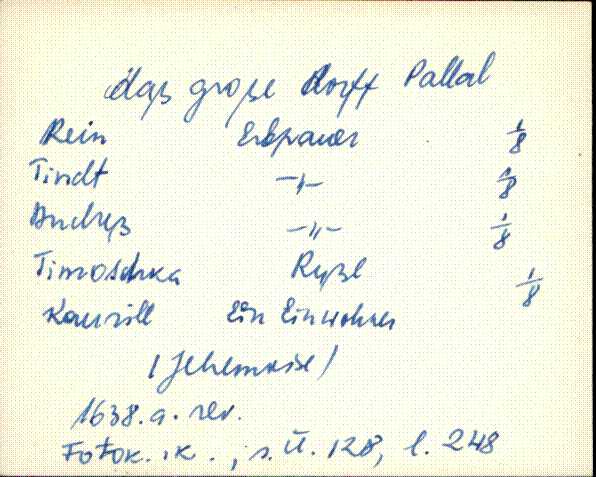 daß große Dorff Pallal
Rein Erbpauer 1/8
Tindt –„– 1/8
Andreß –„– 1/8
Timoschka Ryßl 1/8
Kaurill Ein Einwohner
1638. a. rev.
Fotok. K., s. Ü. 128, l. 248